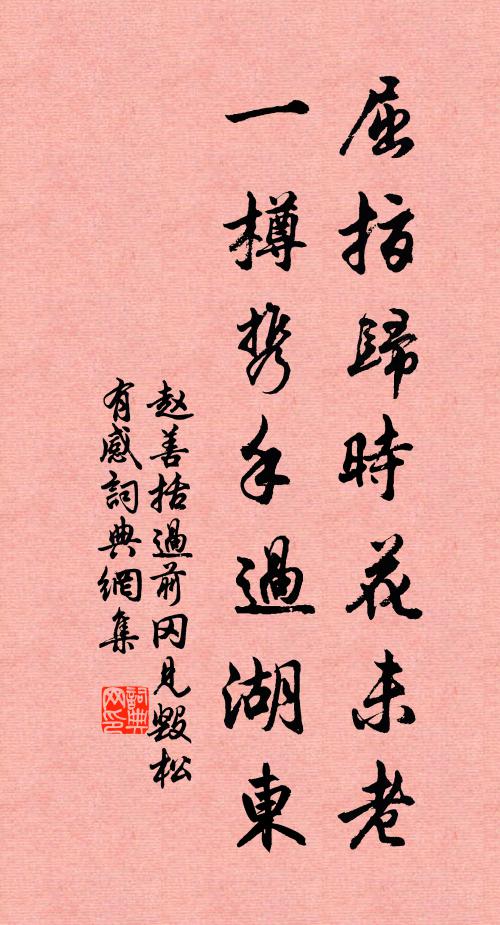 屈指歸時花未老
一樽携手過湖東
赵善括過前冈見毀松
有感詞典網集
詞典
网印